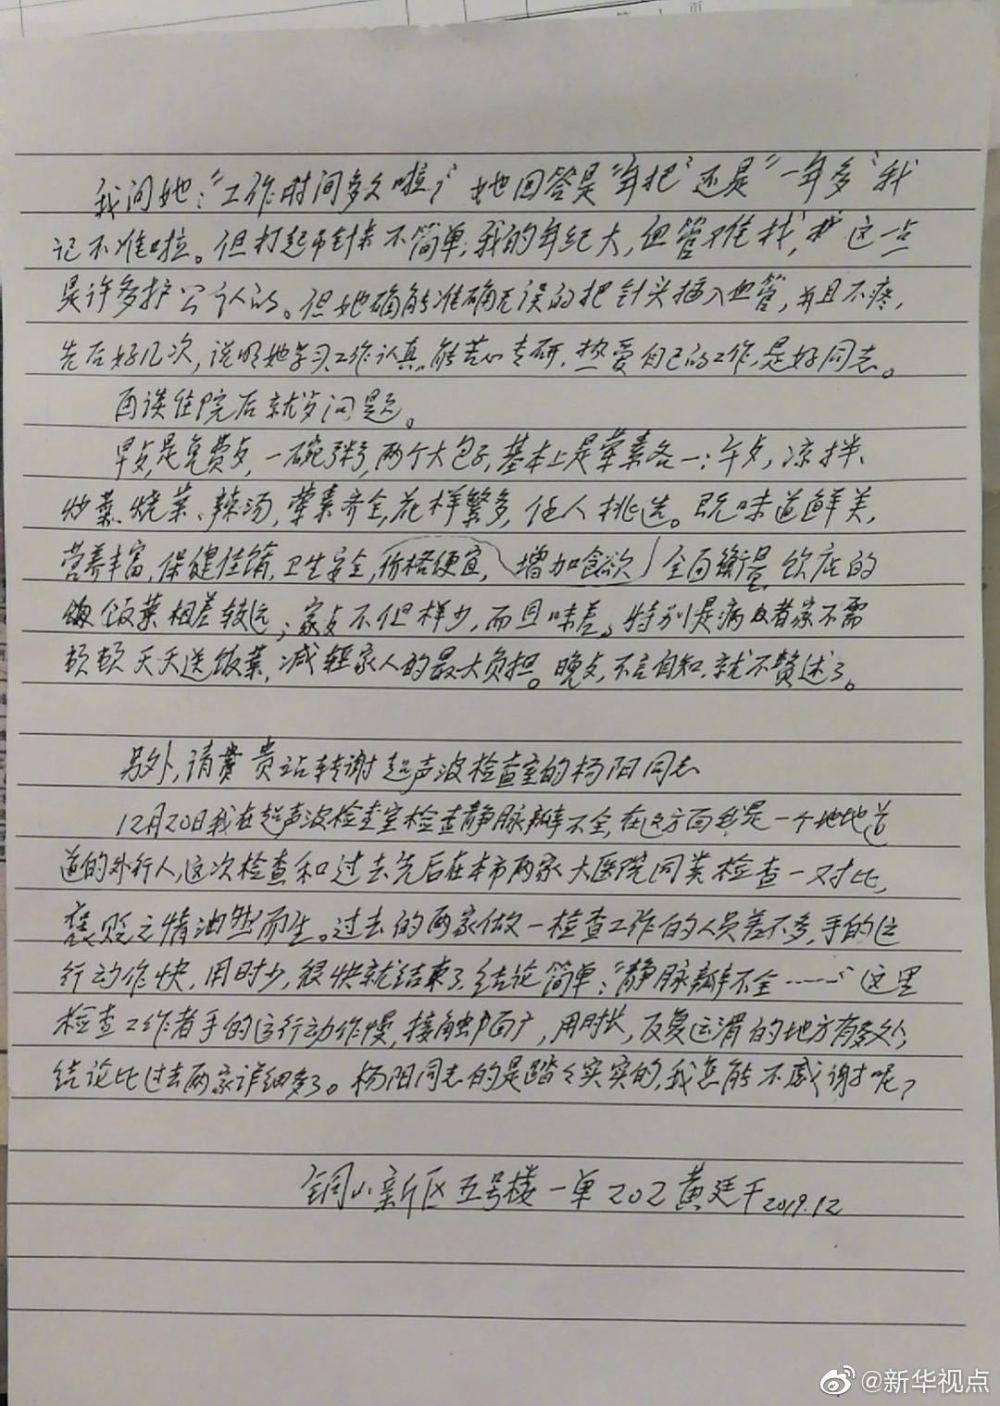 我问她："工作时间多久啦？"她回答是"年把"还是"一年多"我
记不准啦。但打起吊针来不简单，我的年纪大，血管难找，这一点
是许多护士公认的。但她确能准确无误的把针头插入血管，并且不疼，
先后好几次，说明她学习、工作认真，能苦心专研，热爱自己的工作，是好同志。
再谈住院后就歺问题。
早歺是免费歺，一碗粥，两个大包子，基本上是荤素各一；午歺，凉拌、
炒菜、烧菜、辣汤，荤素齐全，花样繁多，任人挑选。既味道鲜美，
营养丰富，保健佳肴，卫生安全，价格便宜，增加食欲，全面衡量，饮店的
饭菜相差较远；家歺不但样少，而且味差。特别是病者家不需
顿顿天天送饭菜，减轻家人的最大负担。晚歺，不言自知，就不赘述了。
另外，请贵站转谢超声波检查室的杨阳同志
12月20日我在超声波检查室检查静脉瓣不全，在这方面我是一个地地道
道的外行人，这次检查和过去先后在本市两家大医院同类检查一对比，
褒贬之情油然而生。过去的两家做一检查工作的人员差不多，手的运
行动作快，用时少，很快就结束了，结论简单："静脉瓣不全……"这里
检查工作者手的运行动作慢，接触面广，用时长，反复运滑的地方有多处，
结论比过去两家详细多了。杨阳同志的是踏々实实的，我怎能不感谢呢？
铜山新区五号楼一单202黄廷干2019.12
@新华视点